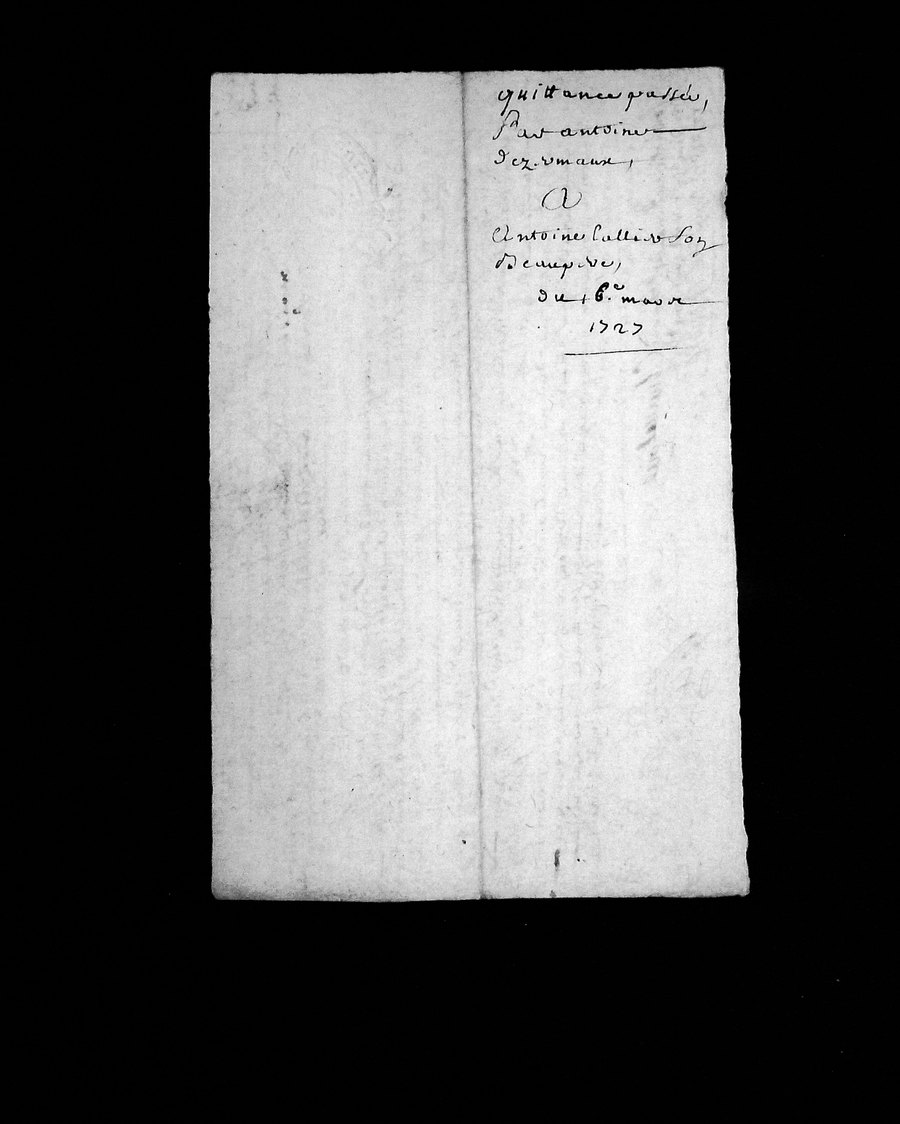 quittance passée,
Par antoine
dezermaux,
A
Antoine Lallier Son
Beaupere,
du 16.e mars
1727